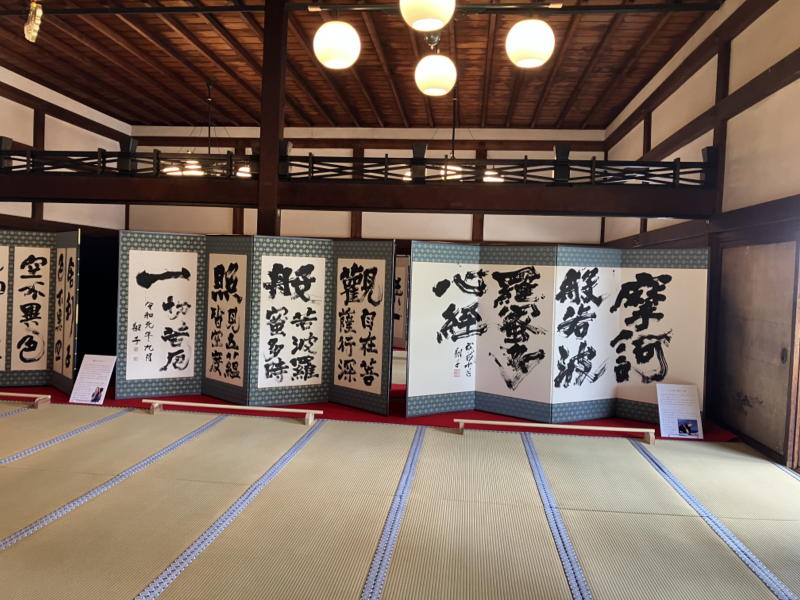 摩訶
般若波
羅蜜多
心經
翔子
觀自在菩
薩行深
般若波羅
蜜多時
照見五蘊
皆空度
一切苦厄
令和元年九月
翔子
舍利子
色不異
空不異色